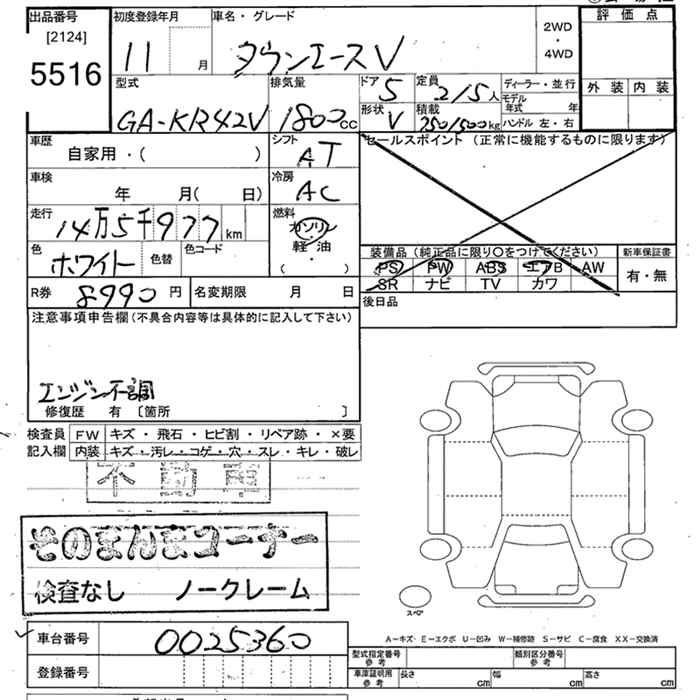 出品番号
[2124]
5516
初度登録年月
11 月
車名・グレード
タウンエースV
2WD
・
4WD
評価点
外装 内装
型式
GA-KR42V
排気量
1800cc
ドア
5
定員
2/5人
形状
V
積載
750/500kg
ディーラー・並行
モデル年式 年
ハンドル 左・右
車歴
自家用・( )
シフト
AT
セールスポイント (正常に機能するものに限ります)
車検
年 月( 日)
冷房
AC
走行
14万5千977km
燃料
ガソリン
軽・油
( )
色
ホワイト
色替
色コード
装備品 (純正品に限り○をつけてください)
PS PW ABS エアB AW
SR ナビ TV カワ
新車保証書
有・無
R券 8990円
名変期限 月 日
後日品
注意事項申告欄(不具合内容等は具体的に記入して下さい)
エンジン不調
修復歴 有 [箇所 ]
検査員
記入欄
FW キズ・飛石・ヒビ割・リペア跡・×要
内装 キズ・汚レ・コゲ・穴・スレ・キレ・破レ
不動車
そのまんまコーナー
検査なし ノークレーム
スペア
A−キズ・E−エクボ U−凹み W−補修跡 S−サビ C−腐食 XX−交換済
車台番号
0025360
登録番号
型式指定番号
参考
類別区分番号
参考
車庫証明用
参考
長さ cm 幅 cm 高さ cm